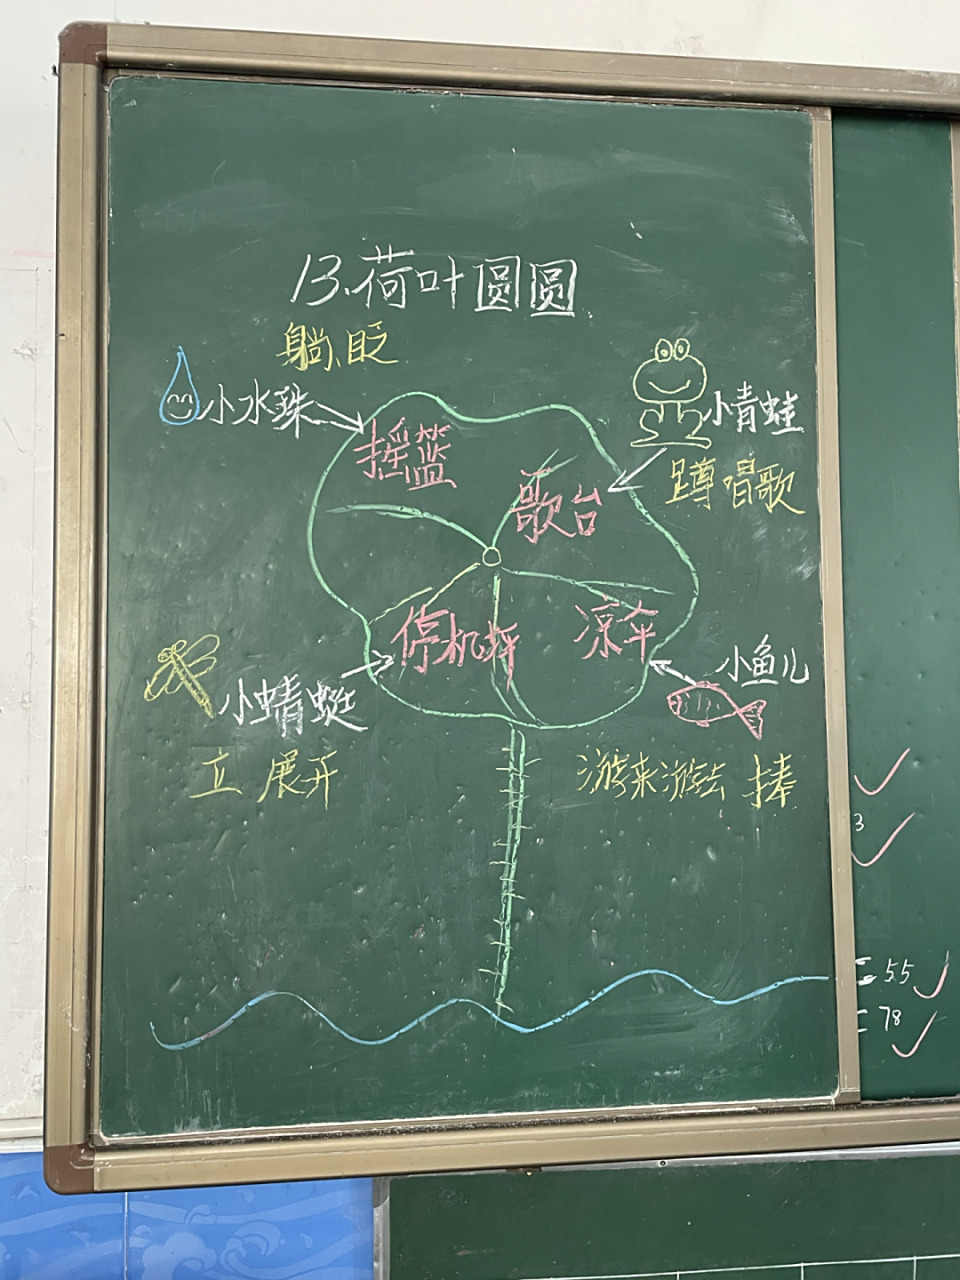 13.荷叶圆圆
躺、眨
小水珠
摇篮
小青蛙
蹲 唱歌
歌台
停机坪
凉伞
小蜻蜓
立 展开
小鱼儿
游来游去 捧
3
= 55
= 78